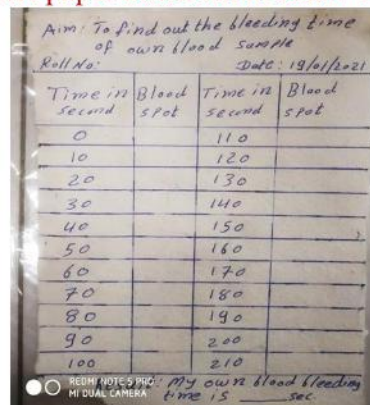 Aim: To find out the bleeding time
of own blood sample
Roll No: Date: 19/01/2021
Time in second Blood spot Time in second Blood spot
0 110
10 120
20 130
30 140
40 150
50 160
60 170
70 180
80 190
90 200
100 210
: My own blood bleeding
time is ____ sec.
REDMI NOTE 5 PRO
MI DUAL CAMERA